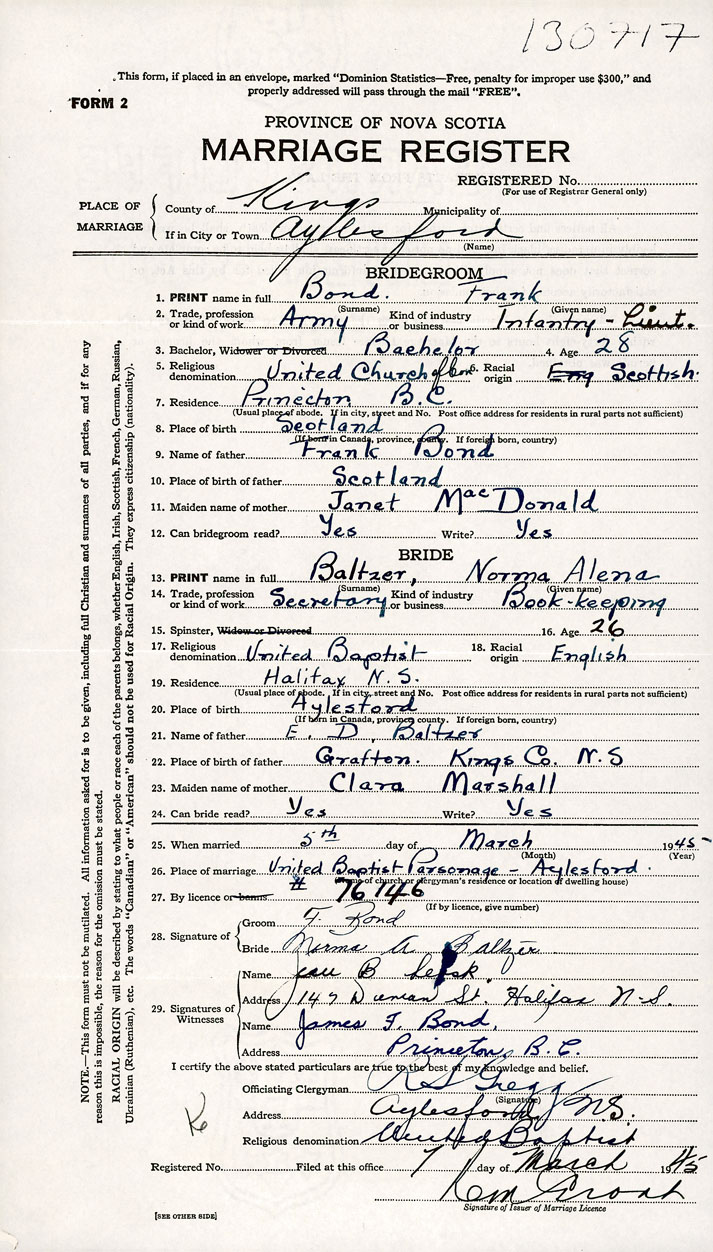 130717
This form, if placed in an envelope, marked "Dominion Statistics—Free, penalty for improper use $300," and
properly addressed will pass through the mail "FREE".
FORM 2
PROVINCE OF NOVA SCOTIA
MARRIAGE REGISTER
REGISTERED No.
(For use of Registrar General only)
PLACE OF MARRIAGE
County of Kings Municipality of
If in City or Town Aylesford
(Name)
BRIDEGROOM
1. PRINT name in full Bond. Frank
(Surname) (Given name)
2. Trade, profession or kind of work Army Kind of industry or business Infantry - Lieut.
3. Bachelor, Widower or Divorced Bachelor 4. Age 28
5. Religious denomination United Church of Can 6. Racial origin Eng Scottish.
7. Residence Princeton B.C.
(Usual place of abode. If in city, street and No. Post office address for residents in rural parts not sufficient)
8. Place of birth Scotland
(If born in Canada, province, county. If foreign born, country)
9. Name of father Frank Bond
10. Place of birth of father Scotland
11. Maiden name of mother Janet MacDonald
12. Can bridegroom read? Yes Write? Yes
BRIDE
13. PRINT name in full Baltzer, Norma Alena
(Surname) (Given name)
14. Trade, profession or kind of work Secretary Kind of industry or business Book-keeping
15. Spinster, Widow or Divorced 16. Age 26
17. Religious denomination United Baptist 18. Racial origin English
19. Residence Halifax N.S.
(Usual place of abode. If in city, street and No. Post office address for residents in rural parts not sufficient)
20. Place of birth Aylesford
(If born in Canada, province county. If foreign born, country)
21. Name of father E. D. Baltzer
22. Place of birth of father Grafton. Kings Co. N.S
23. Maiden name of mother Clara Marshall
24. Can bride read? Yes Write? Yes
25. When married 5th day of March 1945
(Month) (Year)
26. Place of marriage United Baptist Parsonage - Aylesford.
(Name of church or clergyman's residence or location of dwelling house)
27. By licence or banns # 76146
(If by licence, give number)
28. Signature of
Groom F. Bond
Bride Norma A. Baltzer
29. Signatures of Witnesses
Name Jean B
Address 147 St. Halifax N.S.
Name James F. Bond,
Address Princeton, B.C.
I certify the above stated particulars are true to the best of my knowledge and belief.
Officiating Clergyman R S Gregg
(Signature)
Address Aylesford, N.S.
Religious denomination United Baptist
Registered No. Filed at this office 7 day of March 1945
Signature of Issuer of Marriage Licence
[SEE OTHER SIDE]
NOTE.—This form must not be mutilated. All information asked for is to be given, including full Christian and surnames of all parties, and if for any
reason this is impossible, the reason for the omission must be stated.
RACIAL ORIGIN will be described by stating to what people or race each of the parents belongs, whether English, Irish, Scottish, French, German, Russian,
Ukrainian (Ruthenian), etc. The words "Canadian" or "American" should not be used for Racial Origin. They express citizenship (nationality).